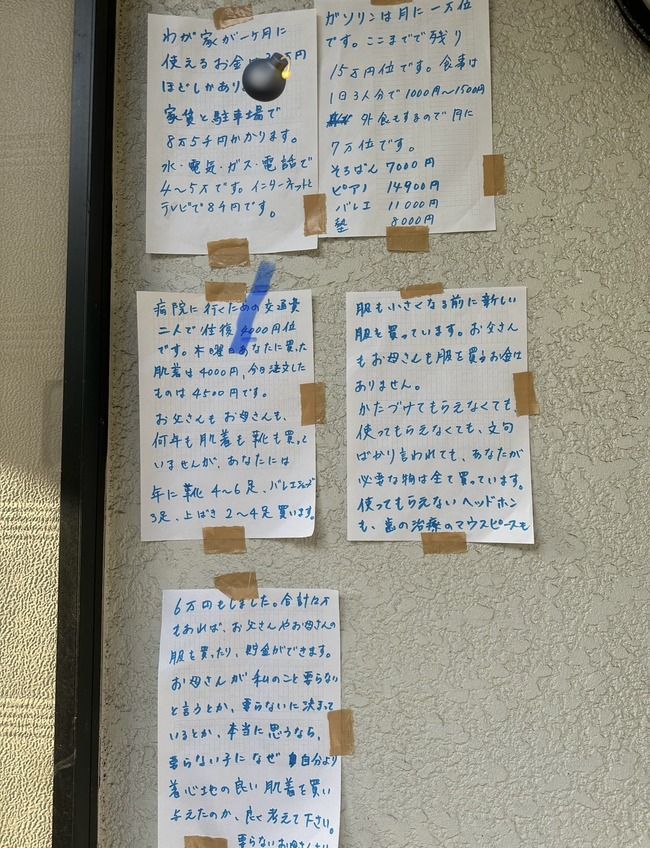 わが家が一ヶ月に
使えるお金は 万円
ほどしかあり
家賃と駐車場で
8万5千円かかります。
水・電気・ガス・電話で
4～5万です。インターネットと
テレビで8千円です。
ガソリンは月に一万位
です。ここまでで残り
15万円位です。食事は
1日3人分で1000円～1500円
外食もするので月に
7万位です。
そろばん 7000円
ピアノ 14900円
バレエ 11000円
塾 8000円
病院に行くための交通費
二人で往復 4000円位
です。木曜日あなたに買った
肌着は4000円、今日注文した
ものは4500円です。
お父さんもお母さんも、
何年も肌着も靴も買って
いませんが、あなたには
年に靴4～6足、バレエシューズ
3足、上ばき2～4足買います。
服も小さくなる前に新しい
服を買っています。お父さん
もお母さんも服を買うお金は
ありません。
かたづけてもらえなくても、
使ってもらえなくても、文句
ばかり言われても、あなたが
必要な物は全て買っています。
使ってもらえないヘッドホン
も、歯の治療のマウスピースも
6万円もしました。合計12万
もあれば、お父さんやお母さんの
服を買ったり、貯金ができます。
お母さんが私のこと要らない
と言うとか、要らないに決まって
いるとか、本当に思うなら、
要らない子になぜ自分より
着心地の良い肌着を買い
与えたのか、良く考えて下さい。
要らないお母さんより